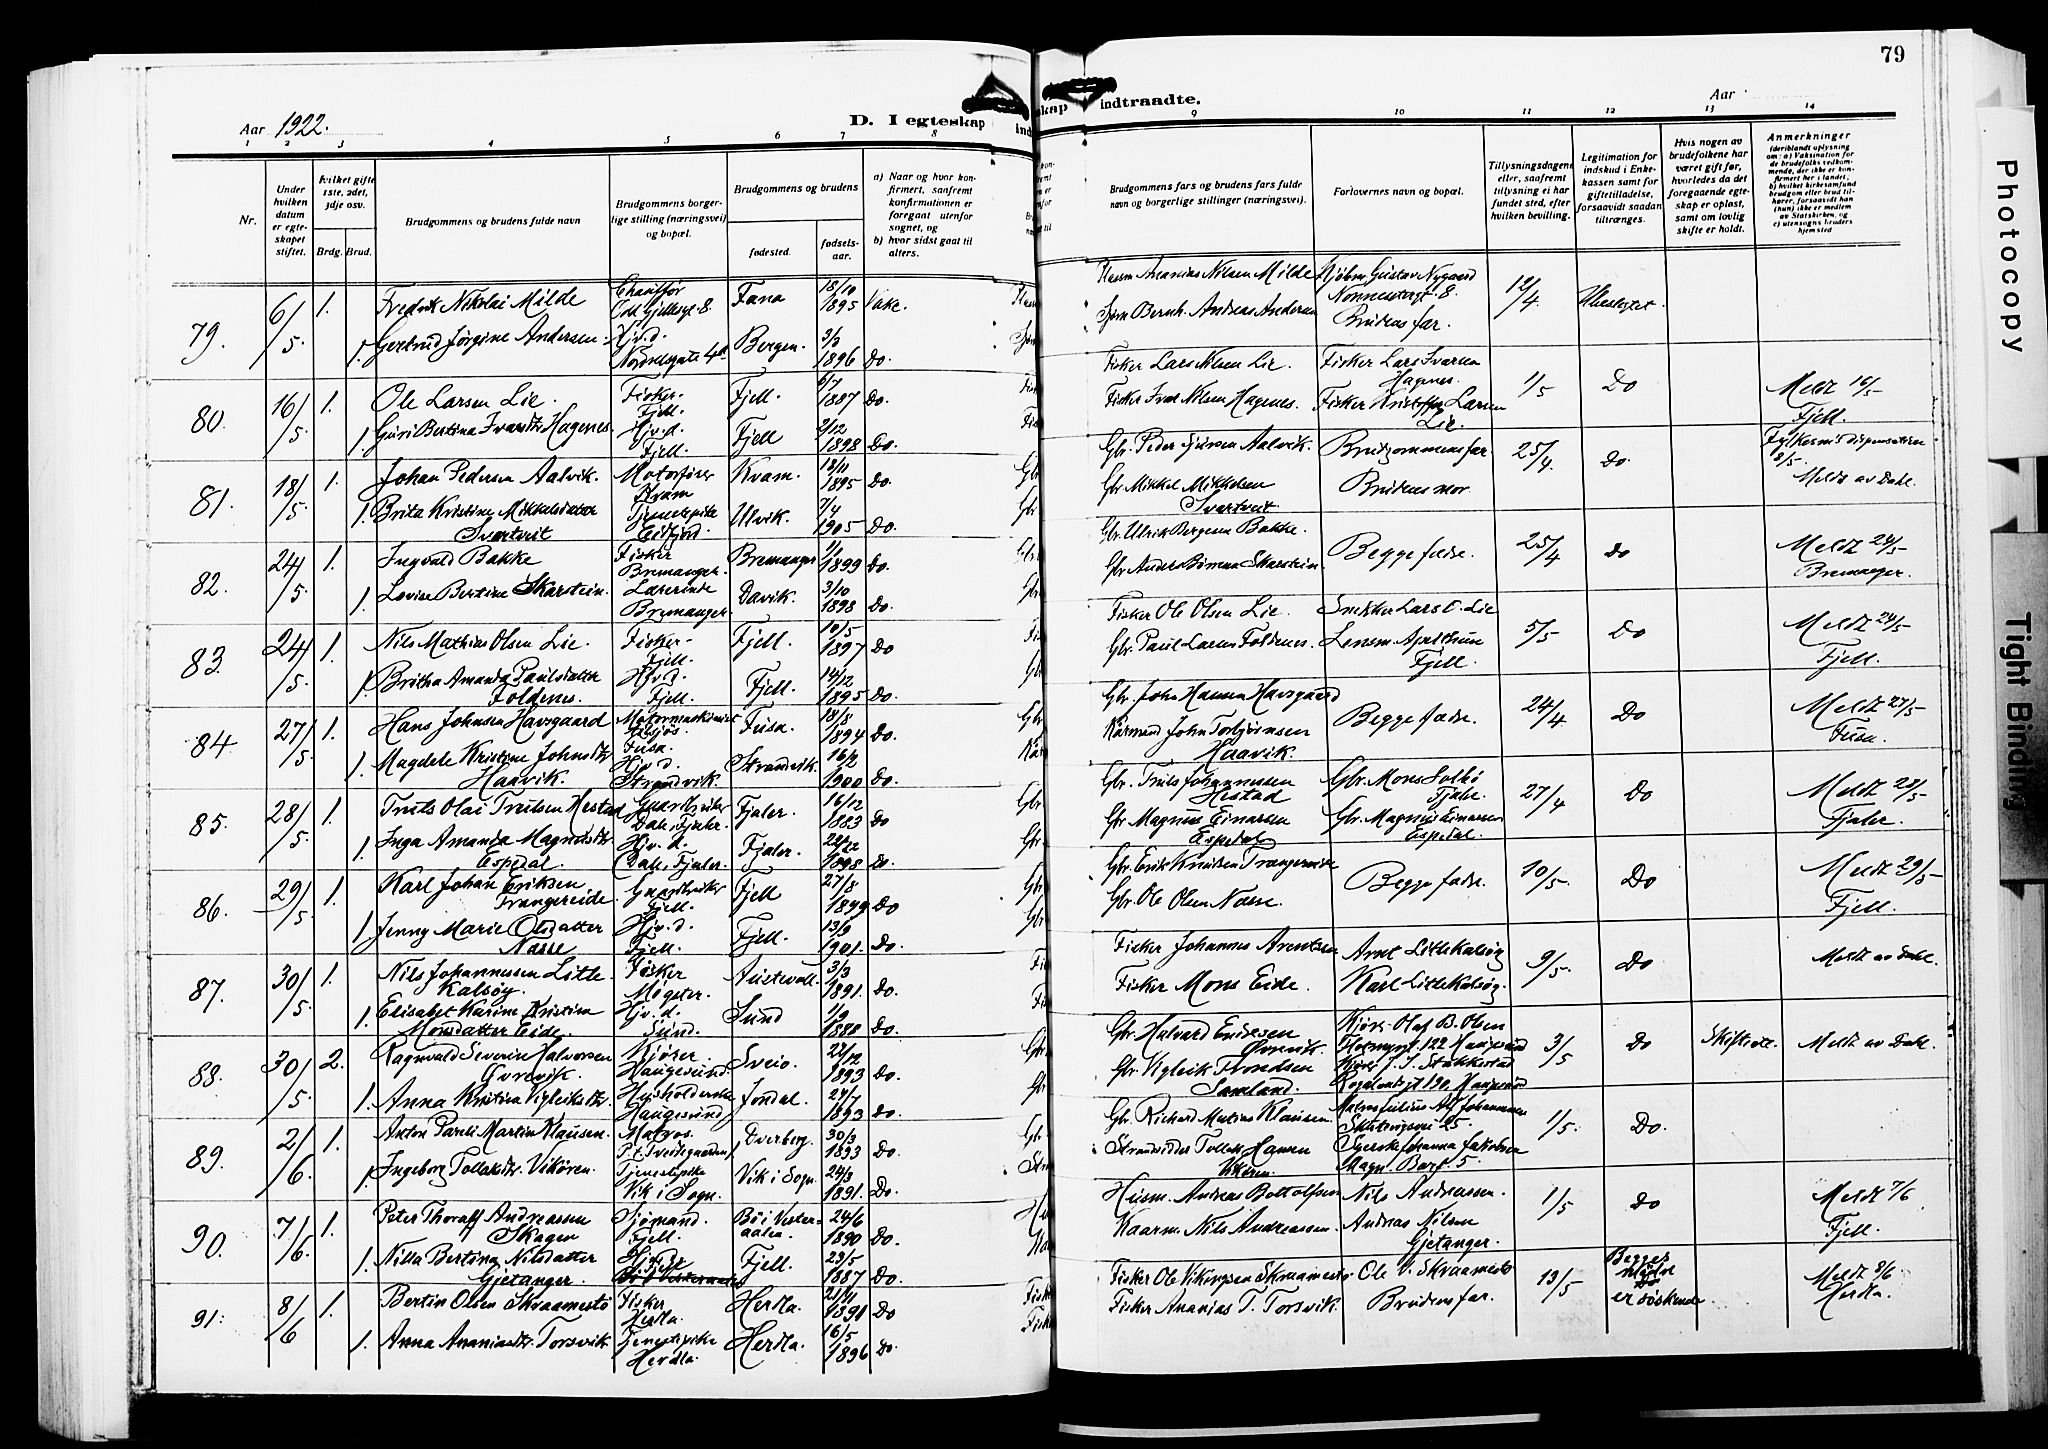 79
Aar 1922.
D. I egteskap
indtraadte.
Aar
1 2 3 4 5 6 7 8
9 10 11 12 13 14
Nr.
Under hvilken datum er egteskapet stiftet.
Hvilket gifte 1ste, 2det, 3dje osv.
Brdg. Brud.
Brudgommens og brudens fulde navn
Brudgommens borgerlige stilling (næringsvei) og bopæl.
Brudgommens og brudens
fødested.
fødselsaar.
a) Naar og hvor konfirmert, saafremt konfirmationen er foregaat utenfor sognet, og
b) hvor sidst gaat til alters.
Brudgommens fars og brudens fars fulde navn og borgerlige stillinger (næringsvei).
Forlovernes navn og bopæl.
Tillysningsdagene eller, saafremt tillysning ei har fundet sted, efter hvilken bevilling.
Legitimation for indskud i Enkekassen samt for giftetilladelse, forsaavidt saadan tiltrænges.
Hvis nogen av brudefolkene har været gift før, hvorledes da det foregaaende egteskap er opløst, samt om lovlig skifte er holdt.
Anmerkninger
79. 6/5 1. Fredrik Nikolai Milde Chauffør Fana 18/10 1895 Vake.
Ananias Nilsen Milde Gustav Nygaard 12/4 Ubeslegtet.
1. Gertrud Jørgine Andersen Hj.v.d. Bergen. 3/3 1896 Do.
Bernh. Andreas Andersen Brudens far
80. 16/5 1. Ole Larsen Lie Fisker. Fjell. Fjell. 1887 Do.
Fisker Lars Nilsen Lie. Fisker Lars Ivarsen Hagenes. 1/5 Do Meldt 16/5 Fjell.
1. Guri Bertina Ivarsdtr. Hagenes Hj.v.d. Fjell. Fjell 2/12 1898 Do.
Fisker Ivar Nilsen Hagenes. Fisker Kristoffer Larsen Lie.
81. 18/5 1. Johan Pedersen Aalvik. Motorfører Kvam Kvam. 1895 Do.
Gbr. Peder Aalvik. Brudgommens far 25/4 Do. Fylkesm's dispensation 8/5. Meldt av Dahl.
1. Brita Kristine Mikkelsdatter Svartveit Tjenestepike Eidfjord. Ulvik. 7/4 1905 Do.
Gbr Mikkel Mikkelsen Svartveit Brudens mor
82. 24/5 1. Ingvald Bakke Fisker Bremanger. Bremanger 1899 Do.
Gbr. Ulrik Bergesen Bakke. Begge fædre. 25/4 Do Meldt 24/5 Bremanger.
1. Lovise Bertine Skarstein. Lærerinde Bremanger. Davik. 3/10 1898 Do.
83. 24/5 1. Nils Mathias Olsen Lie. Fisker Fjell. Fjell. 10/5 1897 Do
Fisker Ole Olsen Lie. Snekker Lars O. Lie 5/5 Do Meldt 24/5 Fjell.
1. Britha Amanda Paulsdatter Foldenes. Hj.v.d. Fjell. Fjell. 14/12 1895 Do.
Gbr. Paul Larsen Foldenes. Lensm. Apelthun Fjell.
84. 27/5 1. Hans Johnsen Havsgaard Motormaskinist Fusa. Fusa. 18/8 1894 Do.
Gbr. John Hansen Havsgaard Begge fædre. 24/4 Do Meldt 27/5 Fusa.
1. Magdele Kristine Johnsdtr. Haavik. Hj.v.d. Strandvik. Strandvik. 16/2 1900 Do.
Kårmand John Torbjørnsen Haavik.
85. 28/5 1. Truls Olai Trulsen Hestad Gaardbruker Dale, Fjaler. Fjaler. 16/12 1883 Do
Gbr. Truls Johannessen Hestad Gbr. Mons Solbø Fjaler. 27/4 Do Meldt 28/5 Fjaler.
1. Inga Amanda Magnusdtr. Espedal. Hj.v.d. Dale, Fjaler. Fjaler. 1898 Do.
Gbr Magnus Einarsen Espedal Gbr. Magnus Einarsen Espedal.
86. 29/5 1. Karl Johan Eriksen Trangereide Gaardbruker Fjell. Fjell 27/8 1899 Do
Gbr. Erik Knudsen Trangereide Begge fædre. 10/5. Do Meldt 29/5 Fjell.
1. Jenny Marie Olsdatter Nasse Hj.v.d. Fjell. Fjell. 13/9 1901. Do.
Gbr. Ole Olsen Nasse.
87. 30/5 1. Nils Johannessen Litle Kalsøy. Fisker Møgster. Austevoll. 3/3 1891. Do.
Fisker Johannes Arentsen Arnt Litlekalsøy 9/5. Do Meldt av Dahl.
1. Elisabet Karine Kristine Monsdatter Eide. Hj.v.d. Sund. Sund 1/9 1888 Do.
Fisker Mons Eide. Karl Litlekalsøy.
88. 30/5 2. Ragnvald Severin Halvorsen Øvrevik. Kjører. Haugesund. Sveio. 1893 Do.
Gbr Halvard Endresen Øvrevik. Kjørs. Olaf B. Olsen 122 Haugesund 3/5 Do Skiftede. Meldt av Dahl.
1. Anna Kristina Vigleiksdtr. Husholderske Haugesund Jondal. 1893 Do.
Gbr Vigleik Trondsen Samland. Stakkestad Haugesund
89. 2/6 1. Anton Pareli Martin Klausen. Matros. Dverberg. 30/3 1893 Do.
Gbr Richard Matias Klausen. Alf Johannessen Skuteviksvei 25. 1/5. Do.
1. Ingeborg Tollefsdtr. Vikøren. Tjenestepike Vik i Sogn. Vik i Sogn 24/3 1891. Do.
Strandsidder Tollef Hansen Vikøren. Johanna Jakobsen Magn. Barf. 5.
90. 7/6 1. Peter Thoralf Andreassen Skagen Sjømand. Fjell. Bø i Vesteraalen. 24/6 1890 Do.
Husm. Andreas Bottolfsen Nils Andreassen. 1/5 Do Meldt 7/6 Fjell.
1. Nilla Bertina Nilsdatter Gjetanger. Fjell. 23/5 1887 Do.
Kaarm. Nils Andreassen. Andreas Nilsen Gjetanger.
91. 8/6 1. Bertin Olsen Skraamestø Fisker Herdla. Herdla. 1891 Do
Fisker Ole Vikingsen Skraamestø Ole V. Skraamestø 13/5 Begges er søskende Meldt 8/6 Herdla.
1. Anna Ananiasdtr. Torsvik Tjenestepike Herdla. Herdla. 16/5 1896 Do.
Fisker Ananias T. Torsvik. Brudens far.
Photocopy
Tight Binding